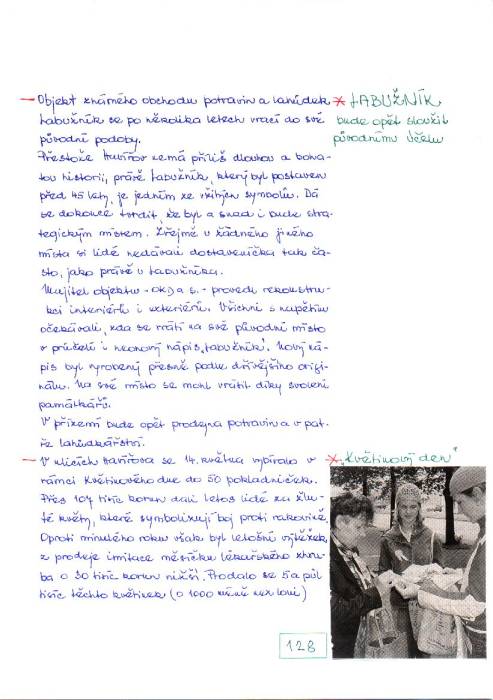 — Objekt známého obchodu potravin a lahůdek
Labužník se po několika letech vrací do své
původní podoby.
Přestože Havířov nemá příliš dlouhou a boha-
tou historii, právě Labužník, který byl postaven
před 45 lety, je jedním ze zdejších symbolů. Dá
se dokonce tvrdit, že byl a snad i bude stra-
tegickým místem. Zřejmě u žádného jiného
místa si lidé nedávali dostaveníčka tak ča-
sto, jako právě u Labužníka.
Majitel objektu - OKD a.s. - provedl rekonstru-
kci interiérů i exteriérů. Všichni s napětím
očekávali, zda se vrátí na své původní místo
v průčelí i neonový nápis „Labužník“. Nový ná-
pis byl vyrobený přesně podle dřívějšího origi-
nálu. Na své místo se mohl vrátit díky svolení
památkářů.
V přízemí bude opět prodejna potravin a v pat-
ře lahůdkářství.
— V ulicích Havířova se 14. května vybíralo v
rámci Květinového dne do 50 pokladniček.
Přes 107 tisíc korun dali letos lidé za žlu-
té květy, které symbolizují boj proti rakovině.
Oproti minulého roku však byl letošní výtěžek
z prodeje imitace měsíčku lékařského zhru-
ba o 30 tisíc korun nižší. Prodalo se 5 a půl
tisíc těchto květinek (o 1000 méně než loni)
* LABUŽNÍK
bude opět sloužit
původnímu účelu
* „Květinový den“
128